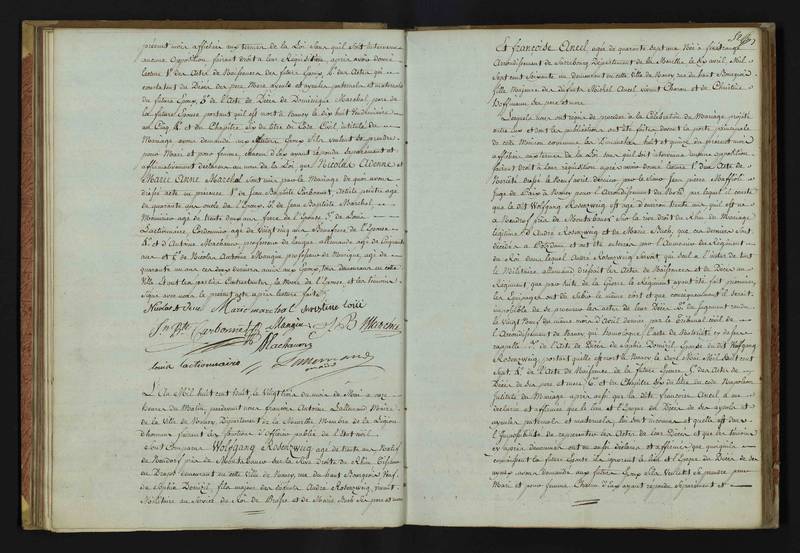 présent mois affichée aux termes de la Loi sans qu'il soit intervenu
aucune Opposition, faisant droit à leur Réquisition, après avoir donné
lecture 1° des Actes de Naissance des futurs Epoux, 2° des Actes qui
constatent du Décès des père Mère ayeuls et ayeules paternels et maternels
du futur Epoux, 3° de l'Acte de Décès de Dominique Marchal père de
la future Epouse portant qu'il est mort à Nancy le dix huit Vendémiaire
an Cinq & du Chapitre Six du titre du Code Civil, intitulé du
Mariage avons demandé aux futurs Epoux s'ils veulent se prendre
pour Mari et pour femme, chacun d'Eux ayant répondu séparément et
affirmativement declarons au nom de la Loi, que Nicolas Etienne et
Marie Anne Marchal sont unis par le Mariage de quoi avons
dressé acte en présence 1° de Jean Baptiste Carbonnet, Artiste peintre agé
de quarante ans oncle de l'Epoux, 2° de Jean Baptiste Marchal,
Menuisier agé de trente deux ans frère de l'Epouse, 3° de Louis
Lactionnaire, Cordonnier agé de Vingt cinq ans Beaufrère de l'Epouse
4° et d'Antoine Machauon professeur de langue allemande agé de Cinquante
ans et de Nicolas Antoine Mangin professeur de Musique, agé de
quarante un ans ces deux derniers amis aux Epoux, tous demeurant en cette
Ville Et ont les parties Contractantes, la Mère de l'Epouse, et les témoins
Signé avec nous le présent acte après lecture faite
Nicolas Etienne Marie marchal Christine
J.n B.te Carbonnet Mangin J. B Marchal
Machauon
Louis Lactionnaire Lallemand
maire
L'An Mil huit cent huit, le Vingt du mois de Mai à onze
heures du Matin, pardevant nous françois Antoine Lallemand Maire
de la Ville de Nancy Département de la Meurthe Membre de la Légion
d'honneur faisant les fonctions d'Officier public de l'Etat civil
Sont Comparus Wolfgang Rosenzweig agé de trente ans natif
de Nendorf près de Montabaur sur la Rive Droite du Rhin
au Dépôt demeurant en cette Ville de Nancy, rue du haut Bourgeois Veuf
de Sophie Domizil, fils majeur des défunts André Rosenzweig, vivant
Militaire au Service du Roi de Prusse et de Marie Barb Ses père et mère
Et françoise Ancel agée de quarante sept ans Née à fénétrange
Arrondissement de Sarrebourg Département de la Meurthe, le avril Mil
Sept cent Soixante un demeurant en cette ville de Nancy rue du haut Bourgeois
fille Majeure des défunts Michel Ancel vivant Charon et de Christine
Hoffmann ses père et mère
Lesquels nous ont requis de procéder à la Célébration du Mariage projeté
entre eux et dont les publications ont été faites devant la porte principale
de cette Maison commune les Dimanches huit et quinze du présent mois
affichées aux termes de la Loi sans qu'il soit intervenu aucune opposition
faisant droit à leur réquisition après avoir donné lecture 1° d'un Acte de
Notoriété dressé le Neuf avril dernier par le Sieur Jean pierre
Juge de Paix à Nancy pour l'Arrondissement du Nord par lequel il conste
que le dit Wolfgang Rosenzweig est agé d'environ trente ans qu'il est né
à Nendorf près de Montabaur sur la rive droite du Rhin du Mariage
légitime d'André Rosenzweig et de Marie Barb, que ces derniers sont
décédés à Potzdam et ont été enterrés par l'Aumonier du Régiment
du Roi dans lequel André Rosenzweig Servait qui seul à l'instar de tout
le Militaire allemand dressait les Actes de Naissances et de Décès au
Régiment que par suite de la Guerre le Régiment ayant été fait prisonnier
les Equipages ont du Subir le même sort et que conséquemment il serait
impossible de se procurer les actes de leur Décès 2° du jugement rendu
le Vingt Neuf du même mois d'avril dernier par le Tribunal civil de
l'Arrondissement de Nancy qui homologue l'acte de Notoriété cy dessus
rappellé 3° de l'Acte de Décès de Sophie Domizil, Epouse du dit Wolfgang
Rosenzweig, portant qu'elle est morte à Nancy le Mai Mil huit cent
Sept 4° de l'Acte de Naissance de la future Epouse, 5° des Actes de
Décès de ses père et mère, 6° et du Chapitre Six du titre du code Napoléon
Intitulé du Mariage après aussi que la dite françoise Ancel a
déclaré et affirmé que le lieu et l'Epoque du Décès de ses ayeuls et
ayeules paternels et maternels, lui sont inconnus et qu'elle est dans
l'Impossibilité de représenter les Actes de leur Décès et que les témoins
cy après dénommés ont aussi déclaré et affirmé que quoiqu'ils
connaissent la future Epouse ils ignorent le lieu et l'Epoque du Décès de ses
ayeuls avons demandé aux futurs Epoux s'ils Veullent se prendre pour
Mari et pour femme Chacun d'Eux ayant répondu Séparément et